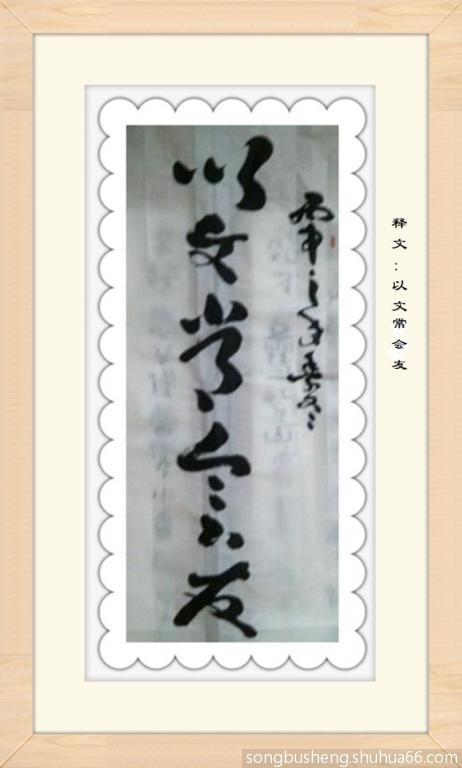 丙申之年
以文常会友
释文：以文常会友
songbusheng.shuhua66.com